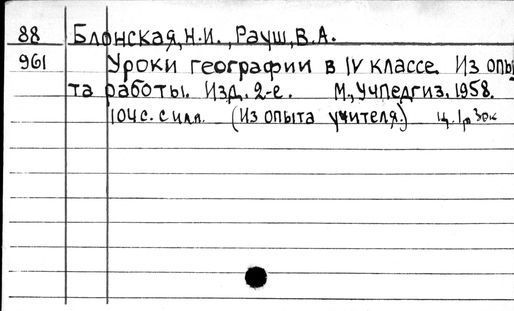 88 Блонская, Н.И., Рауш, В.А.
961 Уроки географии в IV классе. Из опы
та работы. Изд. 2-е. М., Учпедгиз, 1958.
104 с. с илл. (Из опыта учителя.) ц. 1р 30к